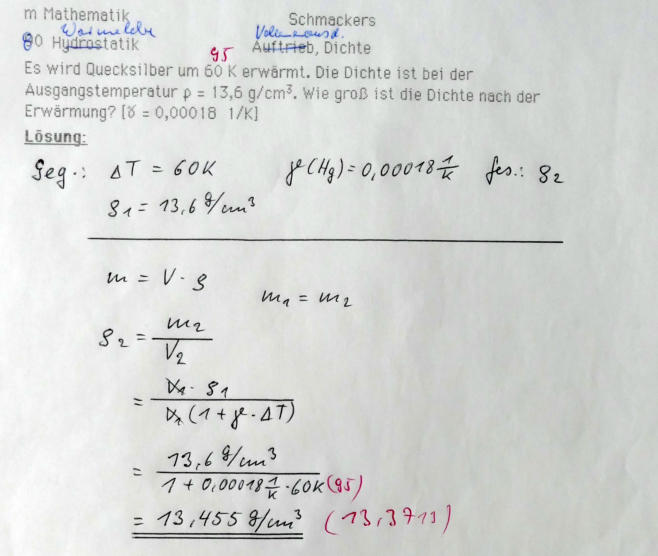 m Mathematik Schmackers
Wärmelehre Volumenausd.
80 Hydrostatik Auftrieb, Dichte
95
Es wird Quecksilber um 60 K erwärmt. Die Dichte ist bei der
Ausgangstemperatur ρ = 13,6 g/cm³. Wie groß ist die Dichte nach der
Erwärmung? [γ = 0,00018 1/K]
Lösung:
Geg.: ΔT = 60K γ(Hg) = 0,00018 1/K Ges.: ρ2
ρ1 = 13,6 g/cm³
m = V · ρ
m1 = m2
ρ2 = m2 / V2
= V1 · ρ1 / V1 (1 + γ · ΔT)
= 13,6 g/cm³ / 1 + 0,00018 1/K · 60K (95)
= 13,455 g/cm³ (13,3713)